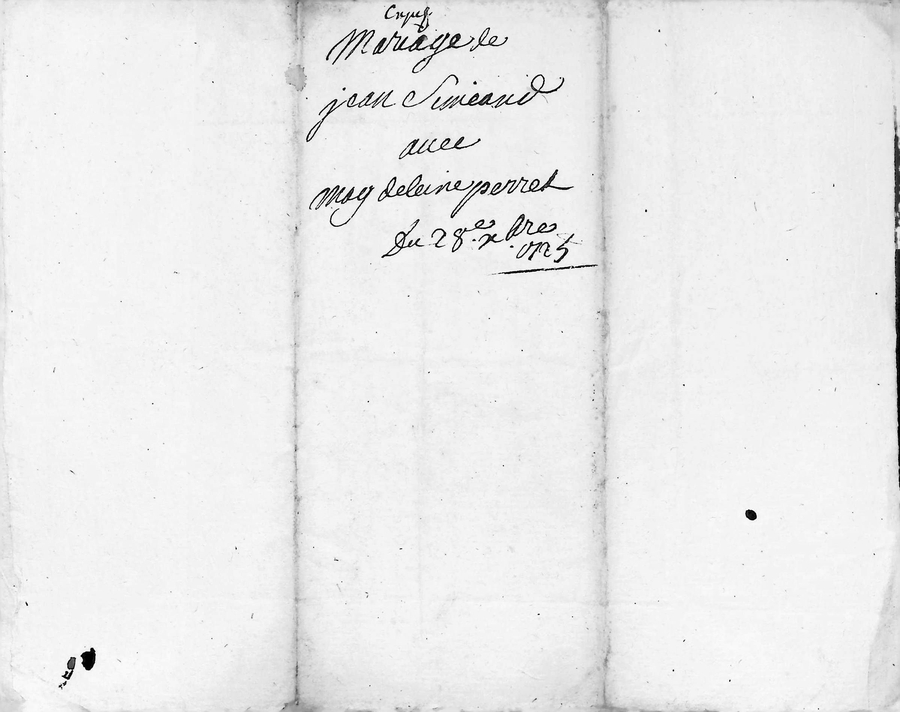 Mariage de
jean Simeand
auec
magdeleine perret
Du 28e xbre
1725